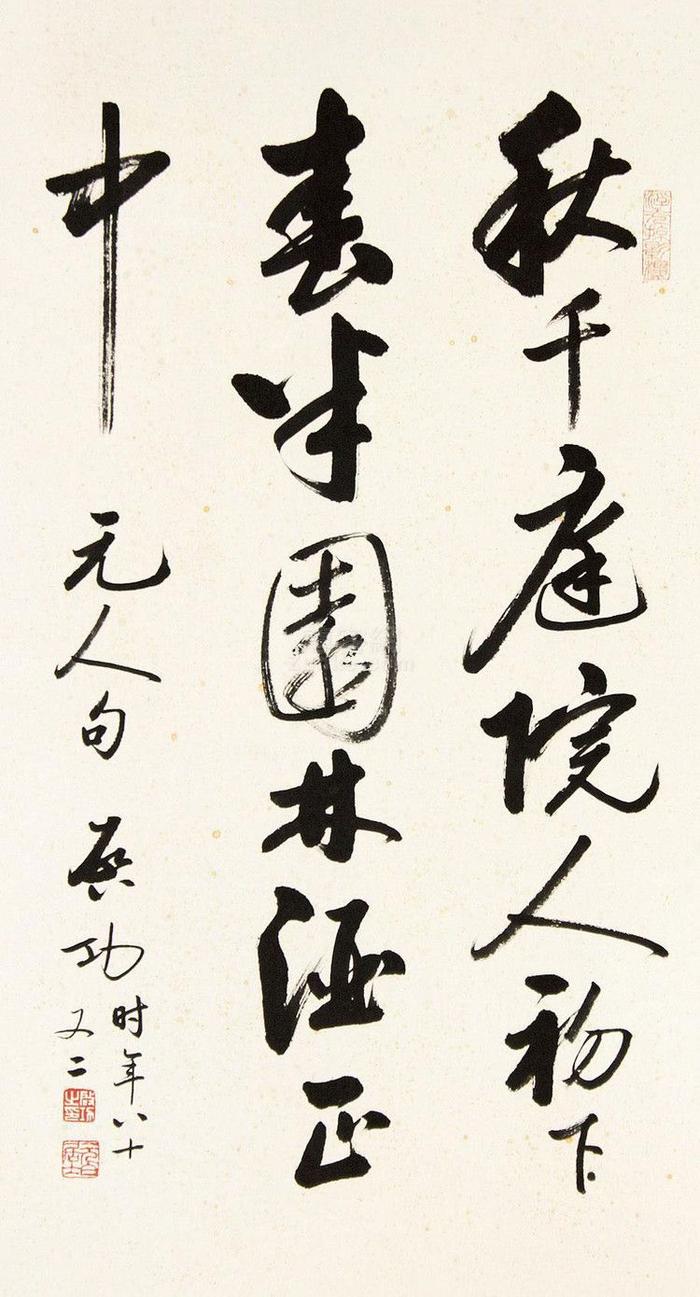 秋千庭院人初下
春半園林酒正
中
元人句 启功
时年八十
又二